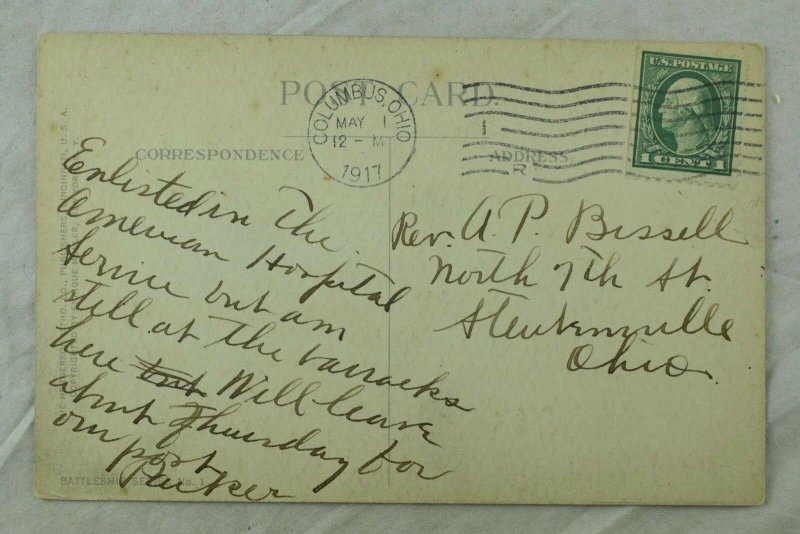 POST CARD.
CORRESPONDENCE
ADDRESS
COLUMBUS, OHIO
MAY 1
12-M
1917
R
U.S. POSTAGE
1 CENT 1
Enlisted in The
American Hospital
Service but am
still at the barracks
here but Will leave
about Thursday for
our post
Parker
Rev. A. P. Bissell
North 7th St.
Steubenville
Ohio.
BATTLESHIP SERIES No. 1